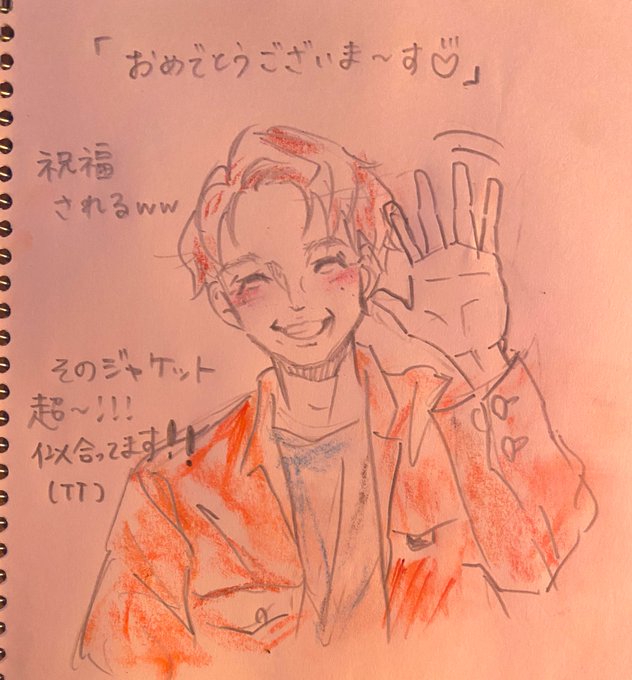 「おめでとうございま～す♡」
祝福
されるww
そのジャケット
超～!!!
似合ってます!!
(TT)